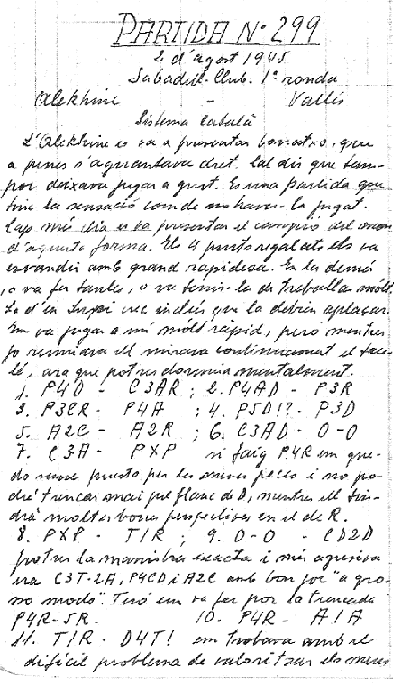 PARTIDA Nº 299
2 d'agost 1945
Sabadell-Club. 1ª ronda
Alekhine - Vallis
Sistema català
L'Alekhine es va a presentar borratxo, que
a penes s'aguantava dret. Cal dir que tam-
poc deixava jugar a gust. Es una partida que
tinc la sensació com de no haver-la jugat.
Cap més dia es va presentar el campió del mon
d'aquesta forma. Els punts regalats els va
amb gran rapidesa. En la demá
o va fer taules, o va tenir-la de treballar molt.
La d'en crec inclús que la debien aplaçar.
Em va jugar a mi molt ràpid, però mentres
jo rumiava ell mirava continuament el tauler,
ara que potser dormia mentalment.
1. P4D - C3AR ; 2. P4AD - P3R
3. P3CR - P4A ; 4. P5D!? - P3D
5. A2C - A2R ; 6. C3AD - O-O
7. C3A - PXP si faig P4R em que-
do sense punts per les meves peces i no po-
dré trencar mai pel flanc de D, mentres ell tin-
drá moltes bones perspectives en el de R.
8. PXP - T1R ; 9. O-O - CD2D
potser la maniobra exacta i més agressiva
era C3T-2A, P4CD i A2C amb bon joc "a gro-
so modo". Però em va fer por la trencada
P4R-5R. 10. P4R - A1A
11. T1R - D4T! em trobava amb el
difícil problema de valoritzar els meus